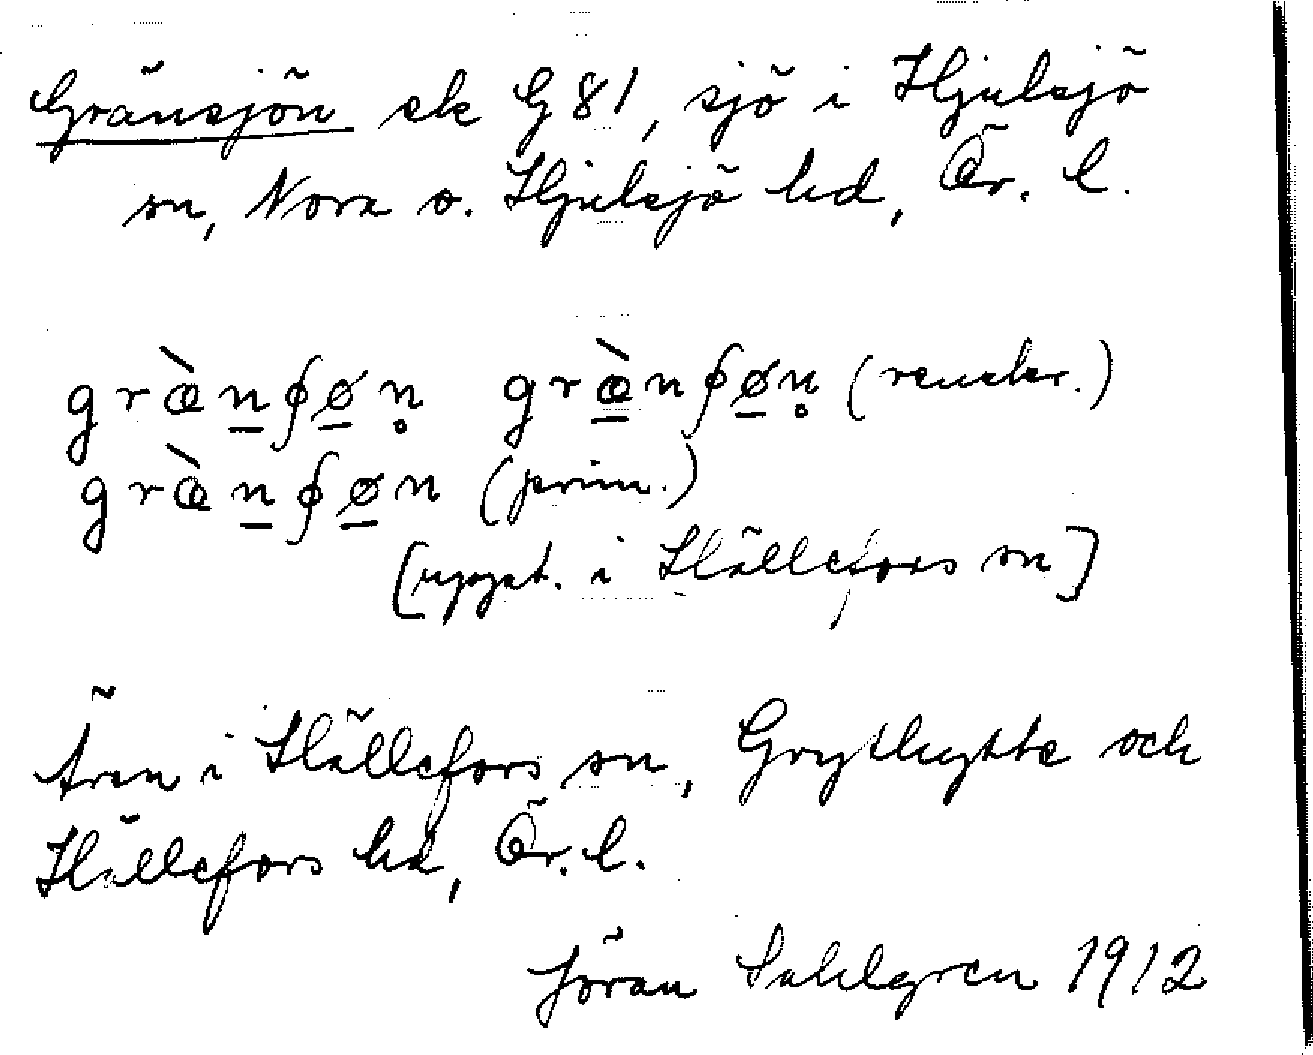 Gränsjön ek G 81, sjö i Hjulsjö
sn, Nora o. Hjulsjö bd, Ör. l.
græ̀n̲ʃø̲n̥ græ̲̀nʃø̲n̥ (renskr.)
græ̀n̲ʃø̲n (prim.)
[uppt. i Hällefors sn]
Även i Hällefors sn, Grythytte och
Hällefors bd, Ör. l.
Jöran Sahlgren 1912